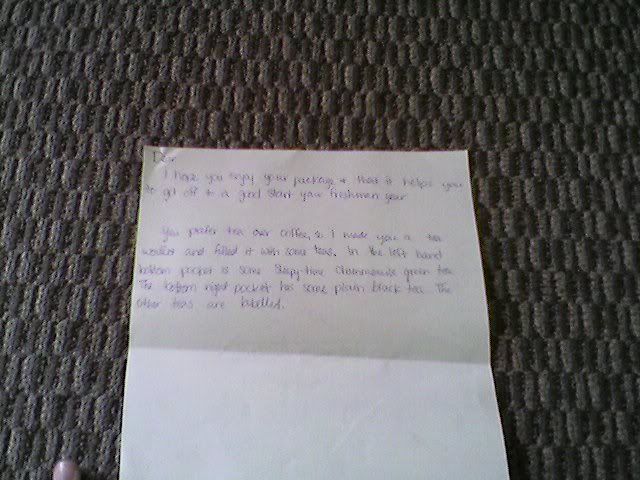 Dear
I hope you enjoy your package & that it helps you
to get off to a good start your freshman year
You prefer tea over coffee, so I made you a tea
wallet and filled it with some teas. In the left hand
bottom pocket is some Sleepy-time Chammomile green tea
The bottom right pocket has some plain black tea. The
other teas are labelled.